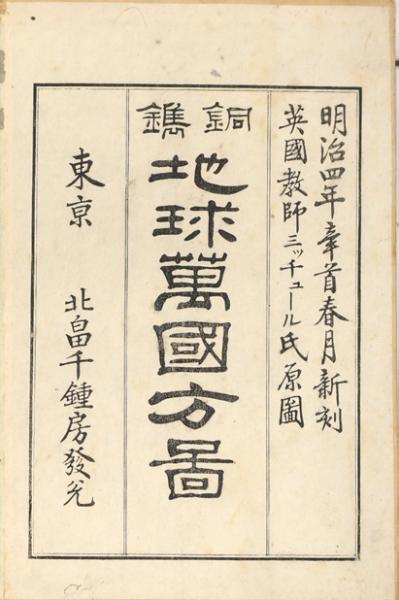 明治四年首春月新刻
英國教師ミッチュール氏原圖
銅鐫
地球萬國方啚
東京　北畠千鍾房發兌